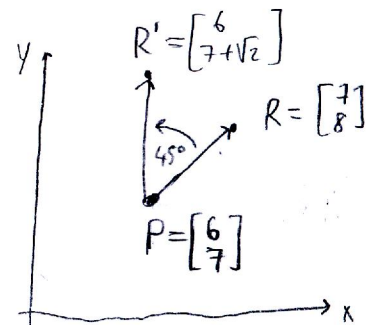 y
R' = [6 7+√2]
R = [7 8]
45°
P = [6 7]
x